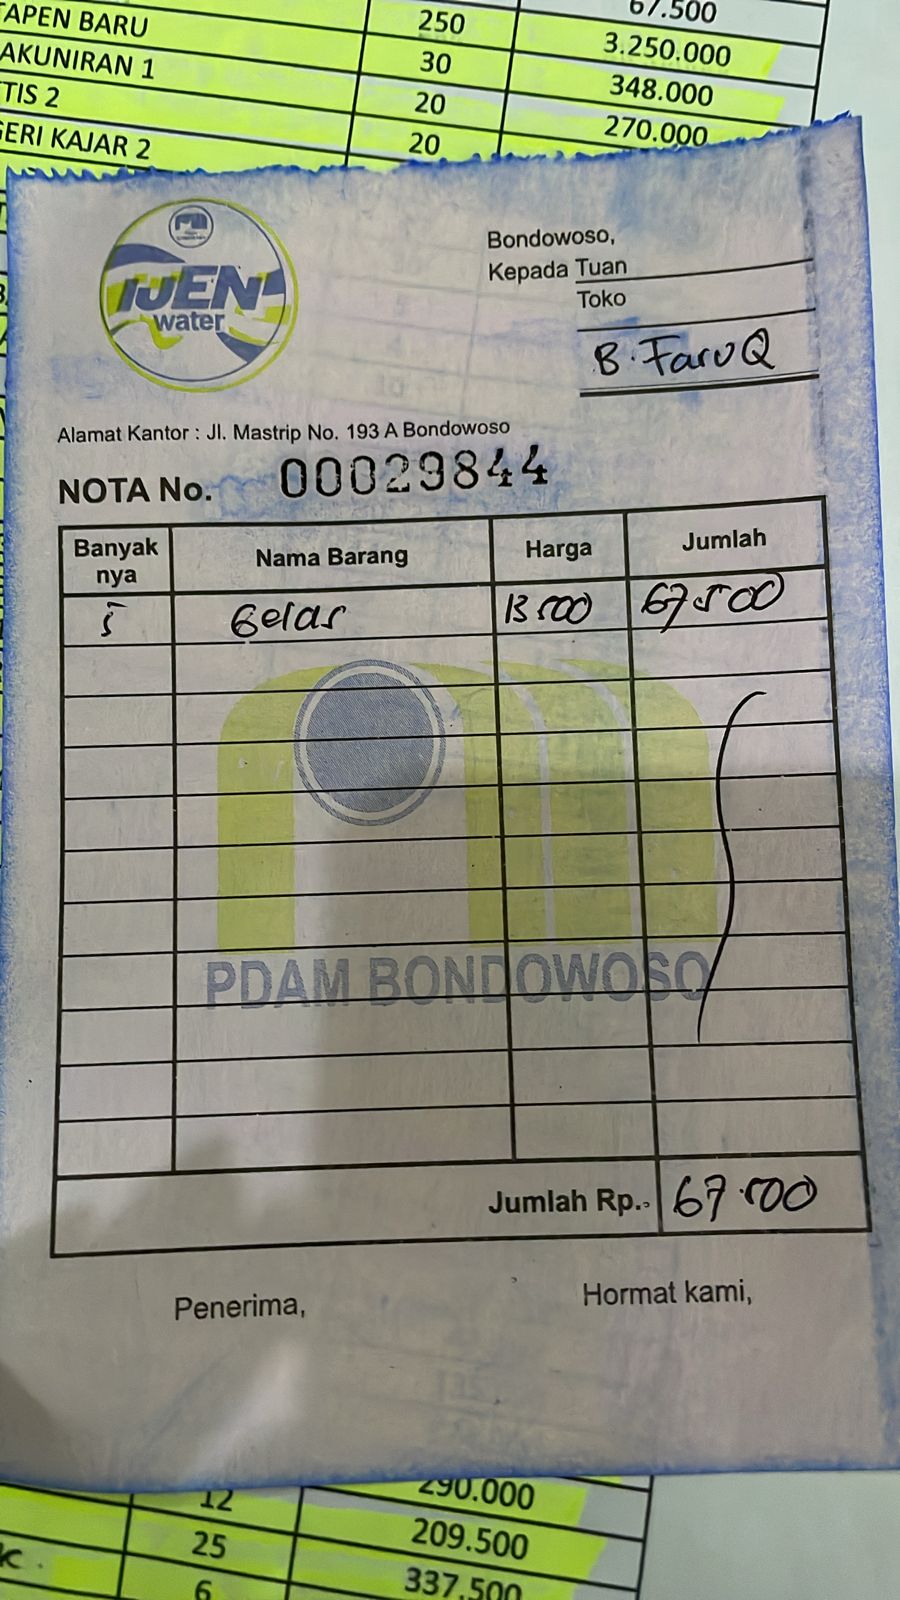 67.500
TAPEN BARU 250 3.250.000
AKUNIRAN 1 30 348.000
TIS 2 20 270.000
GERI KAJAR 2 20
IJEN
water
Bondowoso,
Kepada Tuan
Toko
B. FaruQ
Alamat Kantor : Jl. Mastrip No. 193 A Bondowoso
NOTA No. 00029844
Banyak nya Nama Barang Harga Jumlah
5 Gelas 13500 67500
PDAM BONDOWOSO
Jumlah Rp.- 67.500
Penerima, Hormat kami,
12 290.000
25 209.500
6 337.500